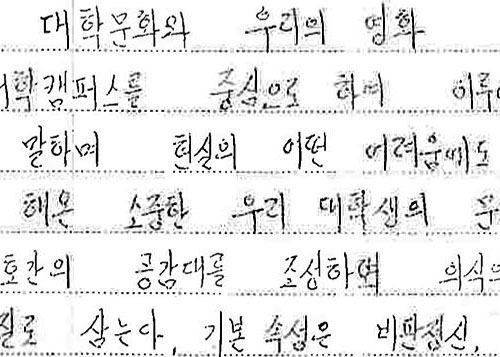 대학문화와 우리의 영화
대학캠퍼스를 중심으로 하여 이루
말하며 현실의 어떤 어려움에도
해온 소중한 우리 대학생의 문
호간의 공감대를 조성하며 의식의
질로 삼는다. 기본 속성은 비판정신,